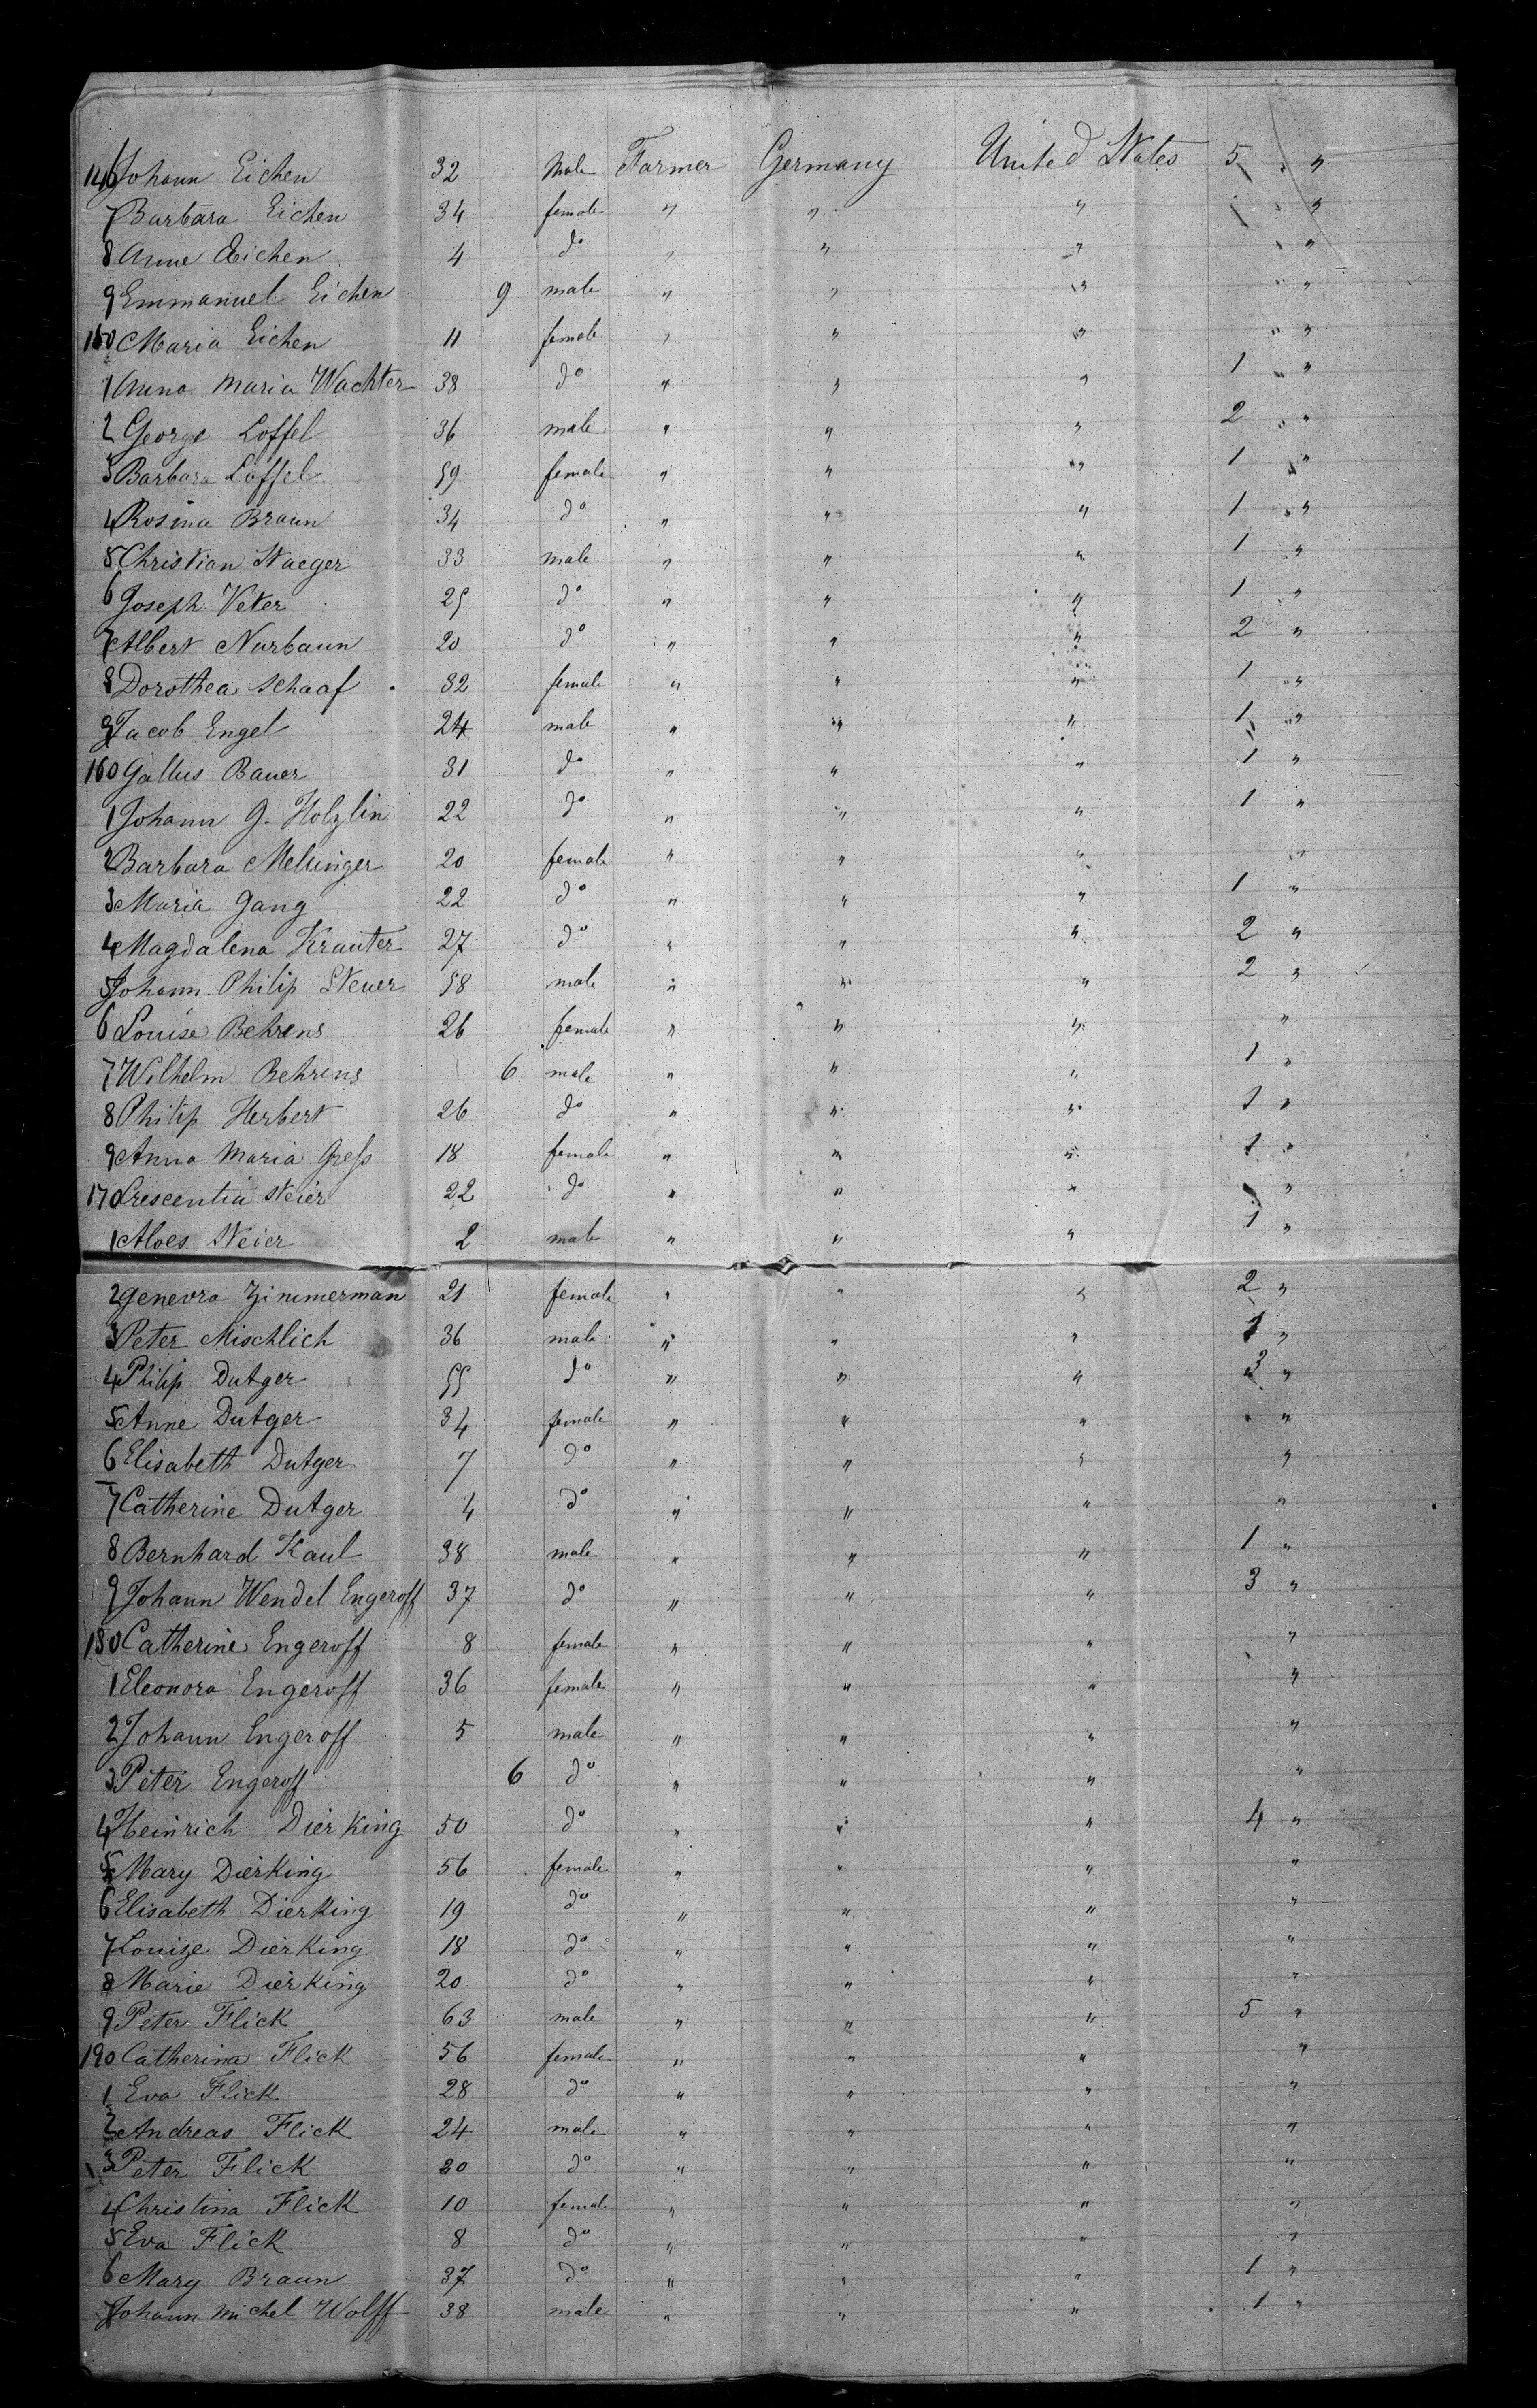 146 Johann Eichen 32 Male Farmer Germany United States 5 "
7 Barbara Eichen 34 female " " " "
8 Anne Eichen 4 do " " " "
9 Emmanuel Eichen 9 male " " " "
150 Maria Eichen 11 female " " " "
1 Anna Maria Wachter 38 do " " " 1 "
2 George Loffel 36 male " " " 2 "
3 Barbara Loffel 59 female " " " 1 "
4 Rosina Braun 34 do " " " 1 "
5 Christian Staeger 33 male " " " 1 "
6 Joseph Veter 25 do " " " 1 "
7 Albert Nurbaun 20 do " " " 2 "
8 Dorothea Schaaf 32 female " " " 1 "
9 Jacob Engel 24 male " " " 1 "
160 Gallus Bauer 31 do " " " 1 "
1 Johann G. Holzlin 22 do " " " 1 "
2 Barbara 20 female " " " "
3 Maria Gang 22 do " " " 1 "
4 Magdalena Krauter 27 do " " " 2 "
5 Johann Philip Steuer 58 male " " " 2 "
6 Louise Behrens 26 female " " " "
7 Wilhelm Behrens 6 male " " " 1 "
8 Philip Herbert 26 do " " " 1 "
9 Anna Maria Gress 18 female " " " 1 "
170 Crescentia Steier 22 do " " " "
1 Aloes Steier 2 male " " " 1 "
2 Genevra Zimmerman 21 female " " " 2 "
3 Peter Mischlich 36 male " " " 1 "
4 Philip Dutger 55 do " " " 3 "
5 Anne Dutger 34 female " " " "
6 Elisabeth Dutger 7 do " " " "
7 Catherine Dutger 4 do " " " "
8 Bernhard Kaul 38 male " " " 1 "
9 Johann Wendel Engeroff 37 do " " " 3 "
180 Catherine Engeroff 8 female " " " "
1 Eleonora Engeroff 36 female " " " "
2 Johann Engeroff 5 male " " " "
3 Peter Engeroff 6 do " " " "
4 Heinrich Dierking 50 do " " " 4 "
5 Mary Dierking 56 female " " " "
6 Elisabeth Dierking 19 do " " " "
7 Louize Dierking 18 do " " " "
8 Marie Dierking 20 do " " " "
9 Peter Flick 63 male " " " 5 "
190 Catherina Flick 56 female " " " "
1 Eva Flick 28 do " " " "
2 Andreas Flick 24 male " " " "
3 Peter Flick 20 do " " " "
4 Christina Flick 10 female " " " "
5 Eva Flick 8 do " " " "
6 Mary Braun 37 do " " " 1 "
7 Johann Michel Wolff 38 male " " " 1 "